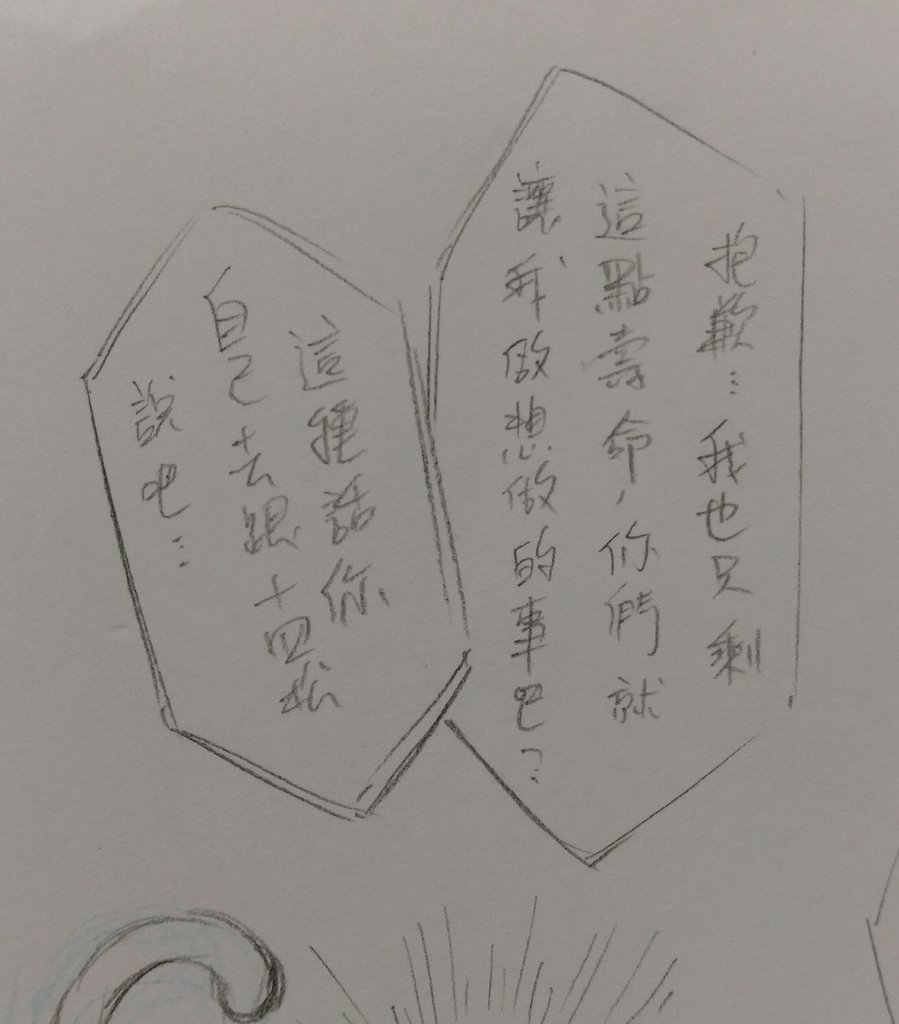 抱歉…我也只剩
這點壽命,你們就
讓我做想做的事吧?
這種話你
自己去跟十四松
說吧…